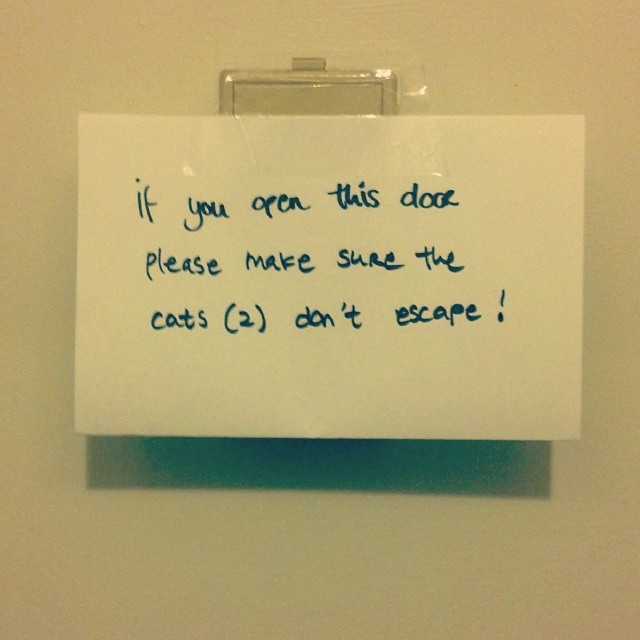 if you open this door
please make sure the
cats (2) don't escape!